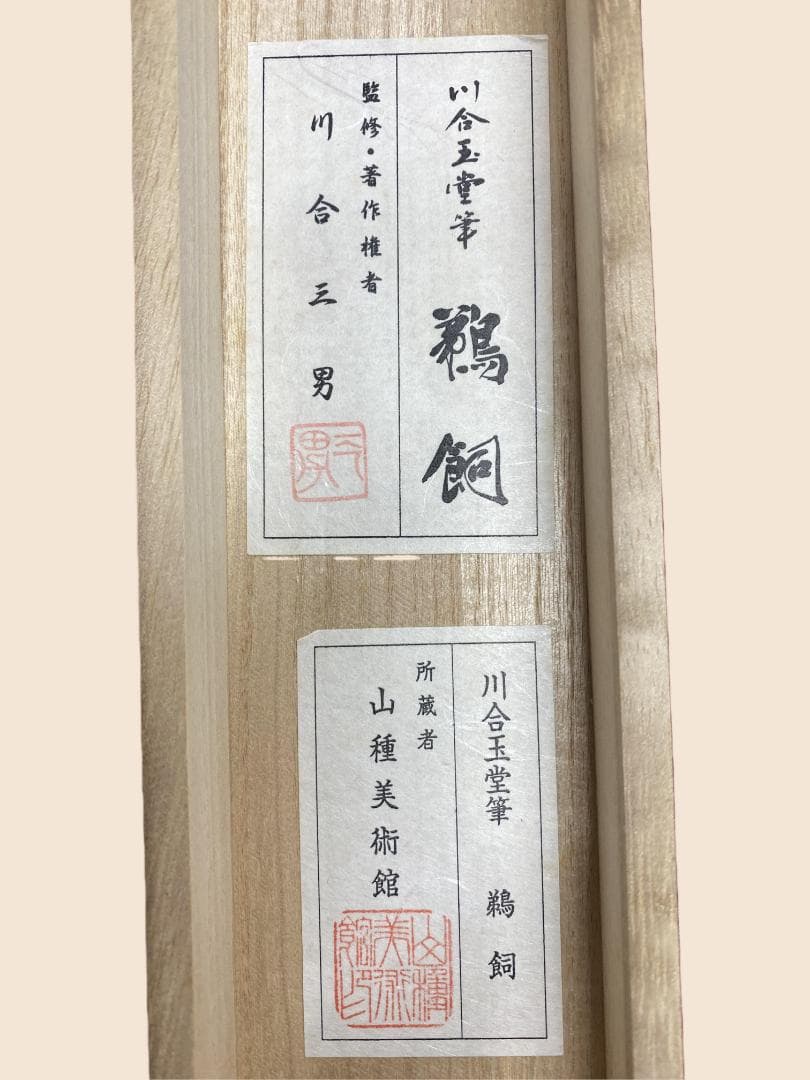 川合玉堂筆 鵜飼
監修・著作権者
川合三男
三男
川合玉堂筆 鵜飼
所蔵者
山種美術館
山種美術館印